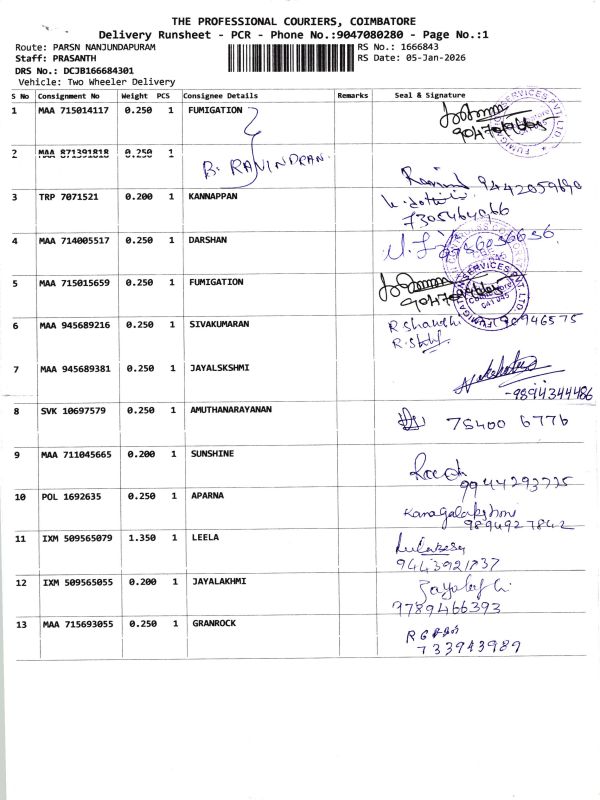 THE PROFESSIONAL COURIERS, COIMBATORE
Delivery Runsheet - PCR - Phone No.:9047080280 - Page No.:1
Route: PARSN NANJUNDAPURAM
RS No.: 1666843
Staff: PRASANTH
RS Date: 05-Jan-2026
DRS No.: DCJB166684301
Vehicle: Two Wheeler Delivery
S No Consignment No Weight PCS Consignee Details Remarks Seal & Signature
1 MAA 715014117 0.250 1 FUMIGATION
2 MAA 871391818 0.250 1
B. RAVINDRAN
9442059690
3 TRP 7071521 0.200 1 KANNAPPAN
7305464966
4 MAA 714005517 0.250 1 DARSHAN
5 MAA 715015659 0.250 1 FUMIGATION
6 MAA 945689216 0.250 1 SIVAKUMARAN R. Shanthi
7 MAA 945689381 0.250 1 JAYALSKSHMI
9894344486
8 SVK 10697579 0.250 1 AMUTHANARAYANAN 75400 6776
9 MAA 711045665 0.200 1 SUNSHINE
9944293775
10 POL 1692635 0.250 1 APARNA Kanagalakshmi
9894927842
11 IXM 509565079 1.350 1 LEELA
9443921737
12 IXM 509565055 0.200 1 JAYALAKHMI
9789466393
13 MAA 715693055 0.250 1 GRANROCK
733943989